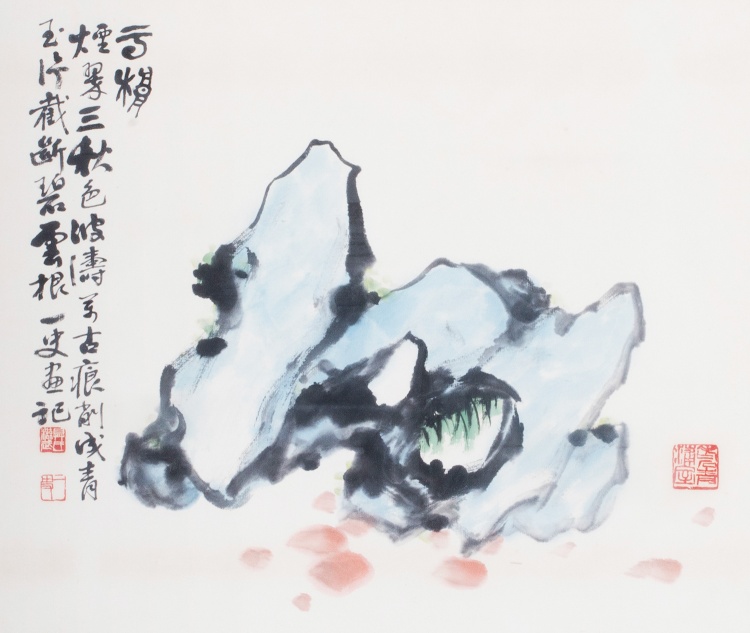 煙翠三秋色波濤萬古痕削成青
玉片截斷碧雲根一史畫記